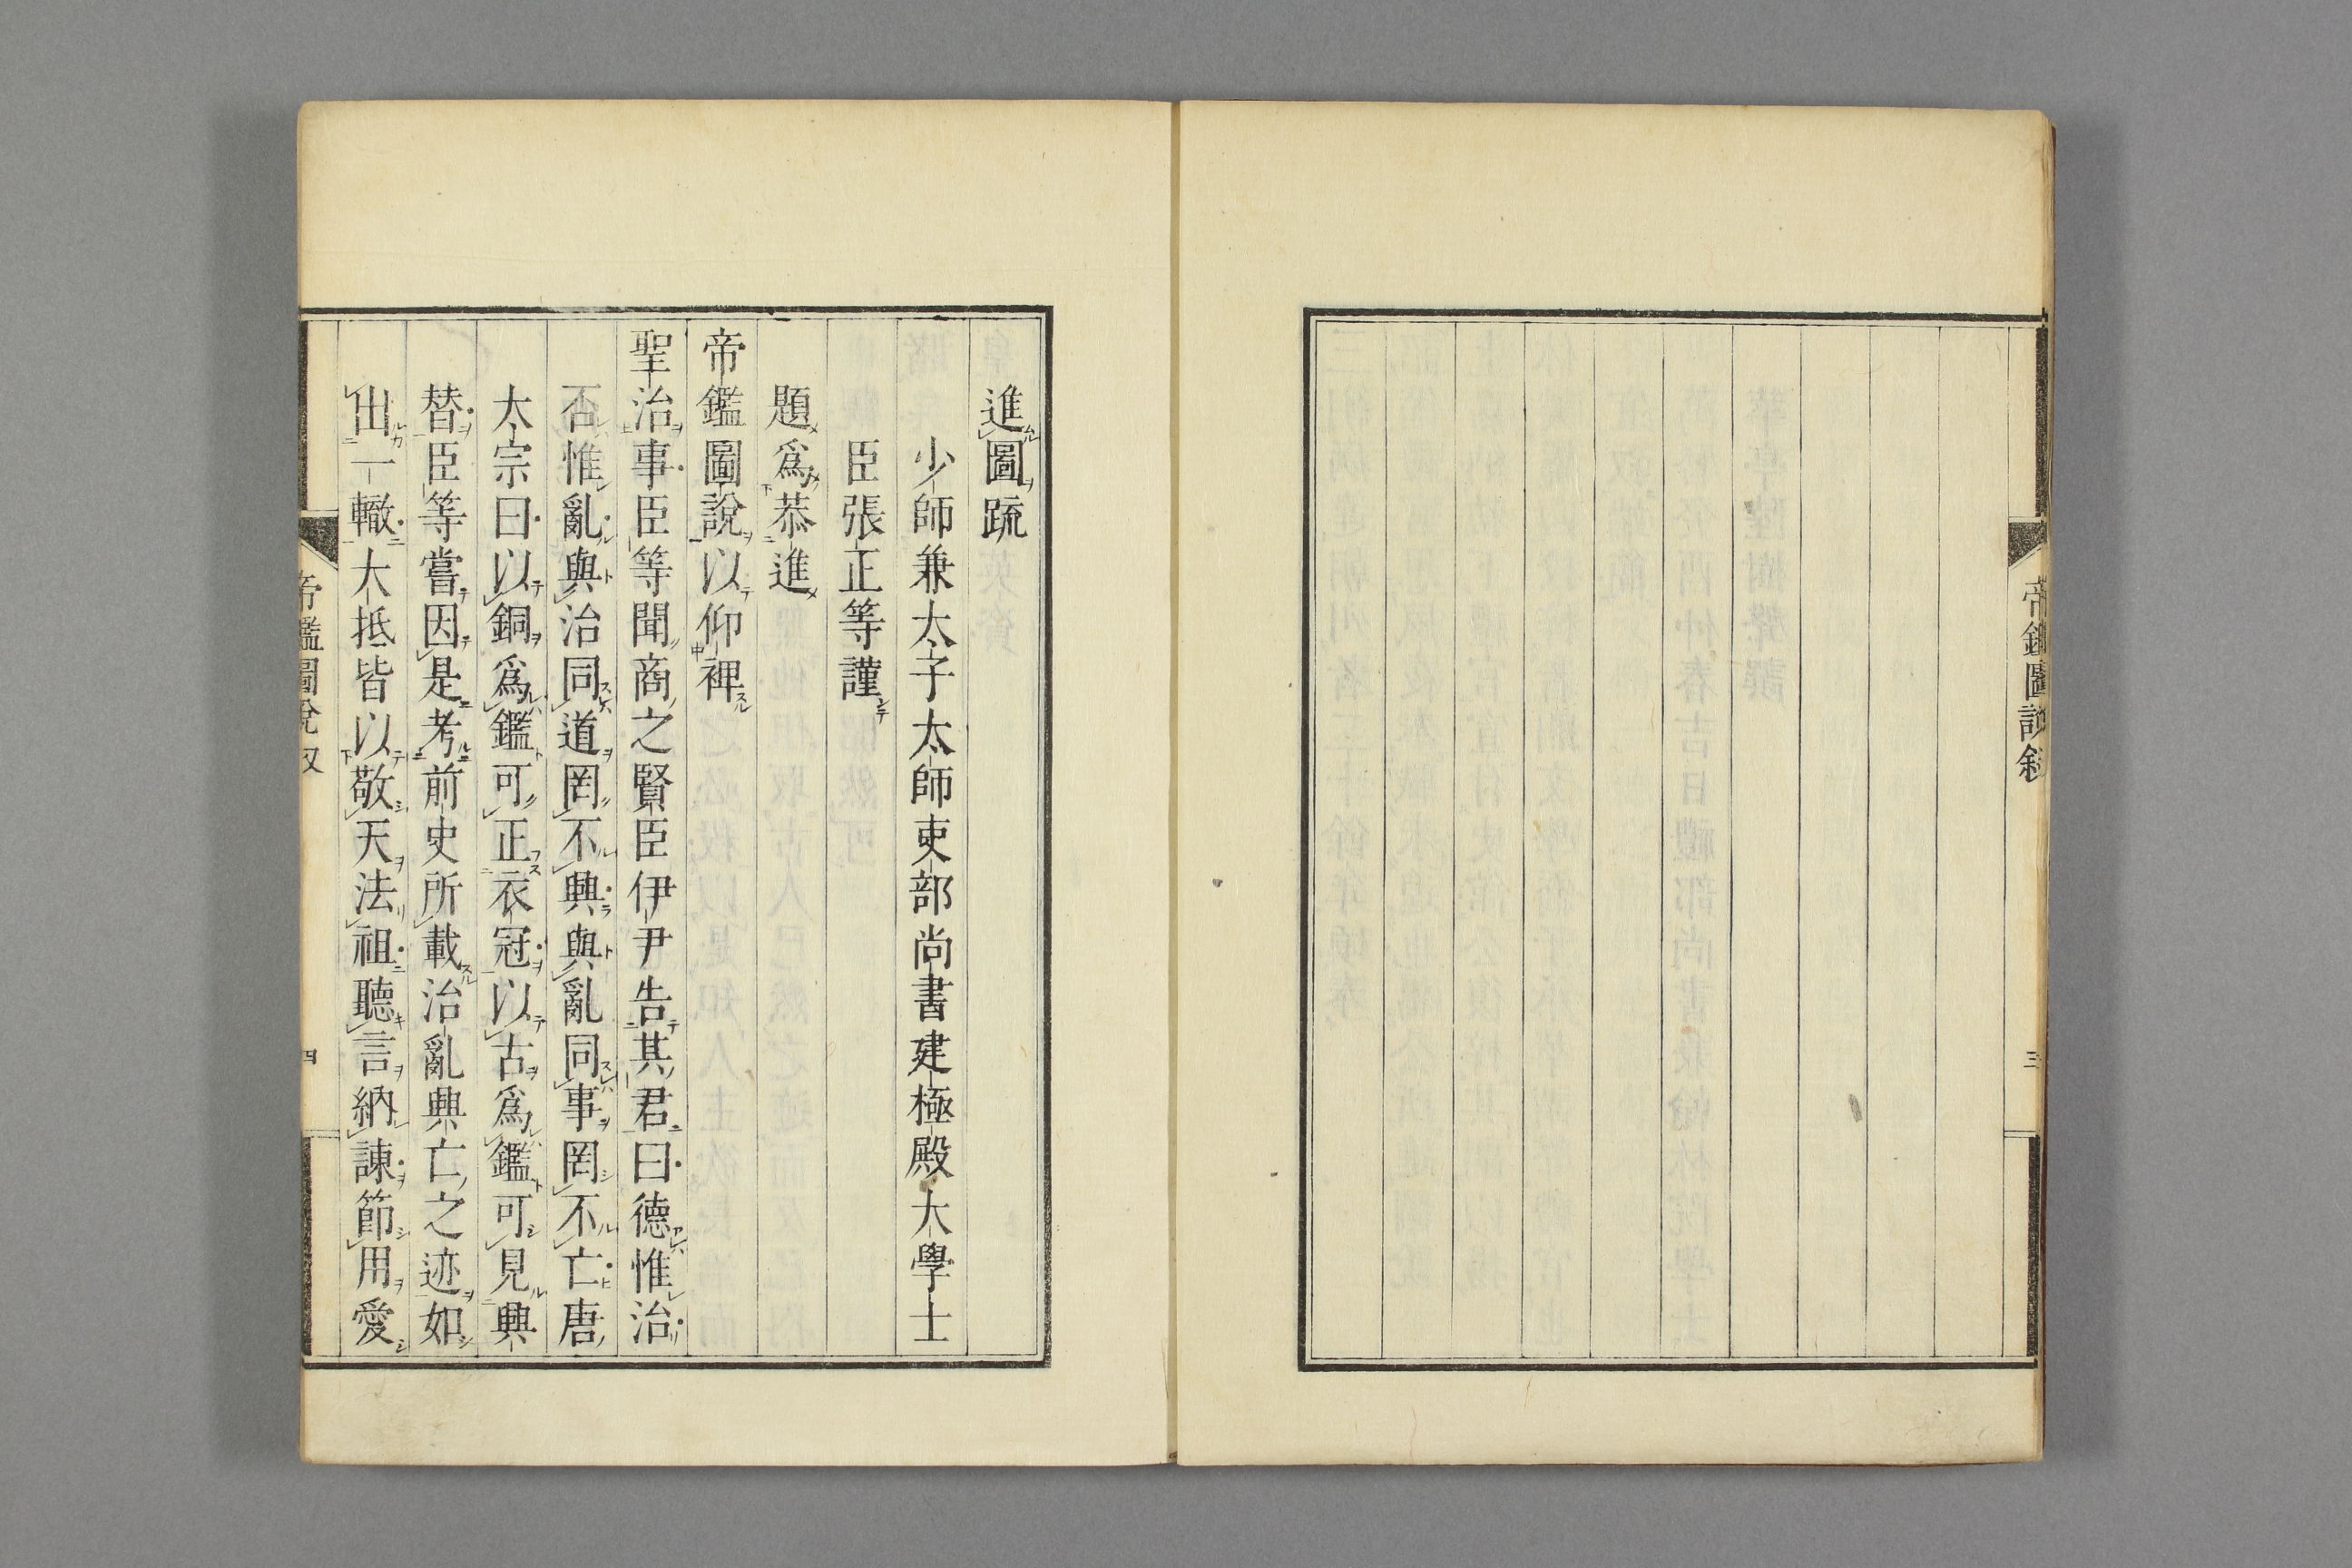 帝鑑圖說敍
三
進圖疏
少師兼太子太師吏部尚書建極殿大學士
臣張正等謹
題爲恭進
帝鑑圖說以仰裨
聖治事臣等聞商之賢臣伊尹告其君曰德惟治
否惟亂與治同道罔不興與亂同事罔不亡唐
太宗曰以銅爲鑑可正衣冠以古爲鑑可見興
替臣等嘗因是考前史所載治亂興亡之迹如
出一轍大抵皆以敬天法祖聽言納諫節用愛
帝鑑圖說
四